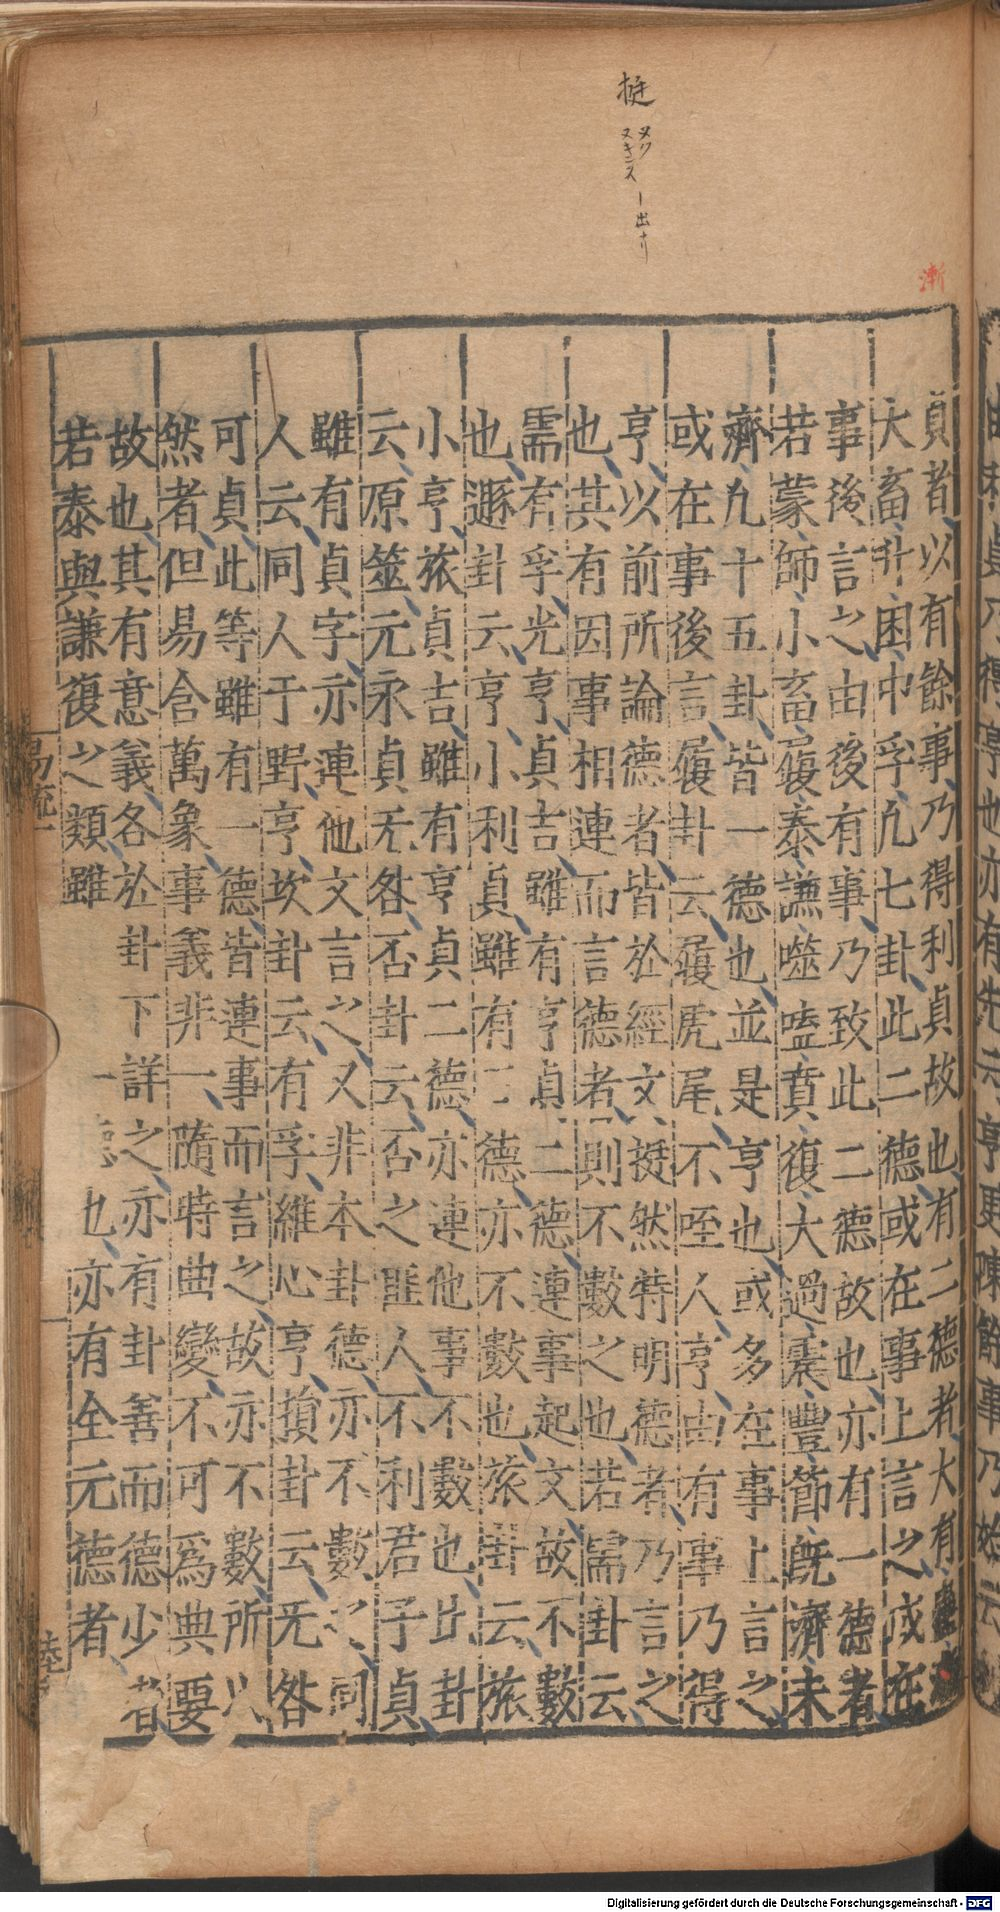 挺
ヌク
ヌキンス
ー出ナリ
漸
貞者以有餘事乃得利貞故也有二德者大有蠱
大畜升困中孚凢七卦此二德或在事上言之或在
事後言之由後有事乃致此二德故也亦有一德者
若蒙師小畜履泰謙噬嗑賁復大過震豐節旣濟未
濟凢十五卦皆一德也並是亨也或多在事上言之
或在事後言履卦云履虎尾不咥人亨由有事乃得
亨以前所論德者皆扵經文挺然特明德者乃言之
也其有因事相連而言德者則不數之也若需卦云
需有孚光亨貞吉雖有亨貞二德連事起文故不數
也遯卦云亨小利貞雖有二德亦不數也旅卦云旅
小亨旅貞吉雖有亨貞二德亦連他事不數也比卦
云原筮元永貞无咎否卦云否之匪人不利君子貞
雖有貞字亦連他文言之又非本卦德亦不數之同
人云同人于野亨坎卦云有孚維心亨損卦云无咎
可貞此等雖有一德皆連事而言之故亦不數所以
然者但易含萬象事義非一隨特曲變不可爲典要
故也其有意義各扵卦下詳之亦有卦善而德少者
若泰與謙復之類雖一德也亦有全元德者
易疏一
Digitalisierung gefördert durch die Deutsche Forschungsgemeinschaft - DFG